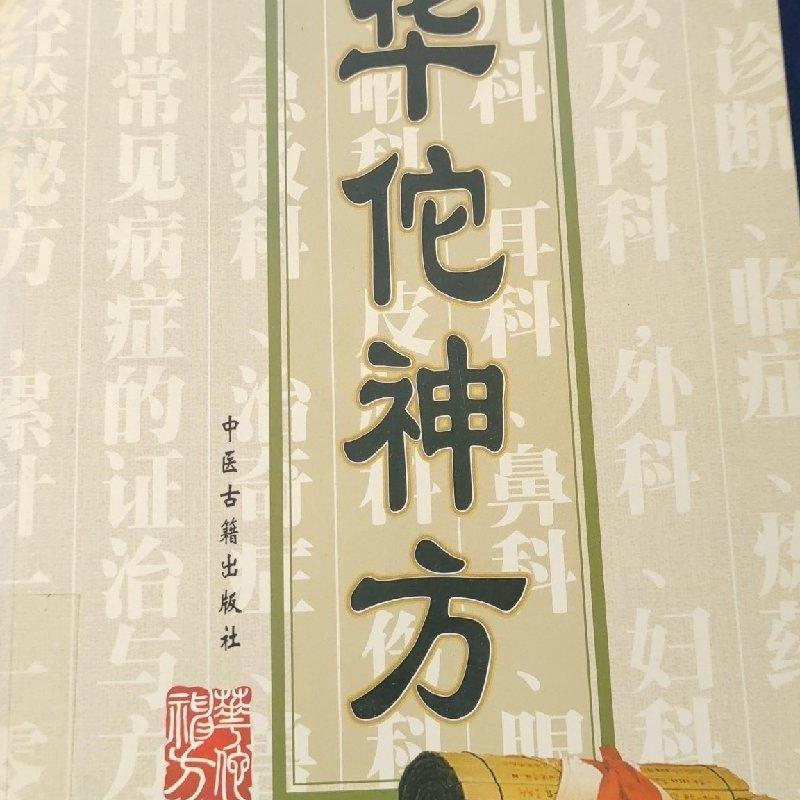 华佗神方
中医古籍出版社
華佗神方
诊断、临症、炼药
以及内科、外科、妇科
儿科、耳科、鼻科、眼
咽科、皮肤科、伤科
、急救科、治奇症、急
种常见病症的证治与方
经验秘方,累计一